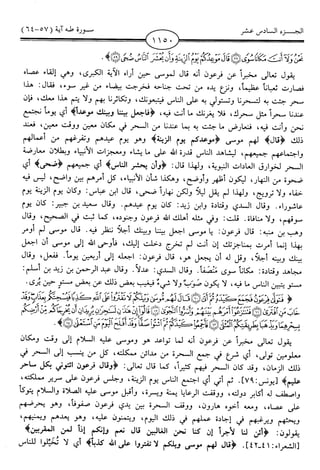 الجـزء السادس عشر
١١٥٠
سورة طه آية (٥٧-٦٤)
نَحْنُ وَلَا أَنتَ مَكَانًا سُوًى ۝ قَالَ مَوْعِدُكُمْ يَوْمُ الزِّينَةِ وَأَن يُحْشَرَ النَّاسُ ضُحًى ۝﴾.
يقول تعالى مخبراً عن فرعون أنه قال لموسى حين أراه الآية الكبرى، وهي إلقاء عصاه
فصارت ثعباناً عظيماً، ونزع يده من تحت جناحه فخرجت بيضاء من غير سوء، فقال: هذا
سحر جئت به لتسحرنا وتستولي به على الناس فيتبعونك، وتكاثرنا بهم ولا يتم هذا معك، فإن
عندنا سحراً مثل سحرك، فلا يغرنك ما أنت فيه، ﴿فاجعل بيننا وبينك موعداً﴾ أي يوماً نجتمع
نحن وأنت فيه، فنعارض ما جئت به بما عندنا من السحر في مكان معين ووقت معين، فعند
ذلك ﴿قال﴾ لهم موسى ﴿موعدكم يوم الزينة﴾ وهو يوم عيدهم وتفرغهم من أعمالهم
واجتماعهم جميعهم، ليشاهد الناس قدرة الله على ما يشاء ومعجزات الأنبياء وبطلان معارضة
السحر لخوارق العادات النبوية، ولهذا قال: ﴿وأن يحشر الناس﴾ أي جميعهم ﴿ضحى﴾ أي
ضحوة من النهار، ليكون أظهر وأوضح، وهكذا شأن الأنبياء، كل أمرهم بين واضح، ليس فيه
خفاء ولا ترويج، ولهذا لم يقل ليلاً ولكن نهاراً ضحى، قال ابن عباس: وكان يوم الزينة يوم
عاشوراء. وقال السدي وقتادة وابن زيد: كان يوم عيدهم. وقال سعيد بن جبير: كان يوم
سوقهم، ولا منافاة. قلت: وفي مثله أهلك الله فرعون وجنوده، كما ثبت في الصحيح، وقال
وهب بن منبه: قال فرعون: يا موسى اجعل بيننا وبينك أجلاً ننظر فيه. قال موسى لم أومر
بهذا إنما أمرت بمناجزتك إن أنت لم تخرج دخلت إليك، فأوحى الله إلى موسى أن اجعل
بينك وبينه أجلاً، وقل له أن يجعل هو، قال فرعون: اجعله إلى أربعين يوماً. ففعل، وقال
مجاهد وقتادة: مكاناً سوى مُنصَفاً. وقال السدي: عدلاً. وقال عبد الرحمن بن زيد بن أسلم:
مستو يتبين الناس ما فيه، لا يكون صوب ولا شيء فيغيب بعض ذلك عن بعض مستو حين يُرى.
يقول تعالى مخبراً عن فرعون أنه لما تواعد هو وموسى عليه السلام إلى وقت ومكان
معلومين تولى، أي شرع في جمع السحرة من مدائن مملكته، كل من ينسب إلى السحر في
ذلك الزمان، وقد كان السحر فيهم كثيراً، كما قال تعالى: ﴿وقال فرعون ائتوني بكل ساحر
عليم﴾ [يونس: ٧٩]. ثم أتى أي اجتمع الناس يوم الزينة، وجلس فرعون على سرير مملكته،
واصطف له أكابر دولته، ووقفت الرعايا يمنة ويسرة، وأقبل موسى عليه الصلاة والسلام يتوكأ
على عصاه، ومعه أخوه هارون، ووقف السحرة بين يدي فرعون صفوفاً، وهو يحرضهم
ويحثهم ويرغبهم في إجادة عملهم في ذلك اليوم، ويتمنون عليه، وهو يعدهم ويمنيهم،
يقولون: ﴿أئن لنا لأجراً إن كنا نحن الغالبين قال نعم وإنكم إذاً لمن المقربين﴾
[الشعراء: ٤١-٤٢]. ﴿قال لهم موسى ويلكم لا تفتروا على الله كذباً﴾ أي لا تُخَيِّلوا للناس